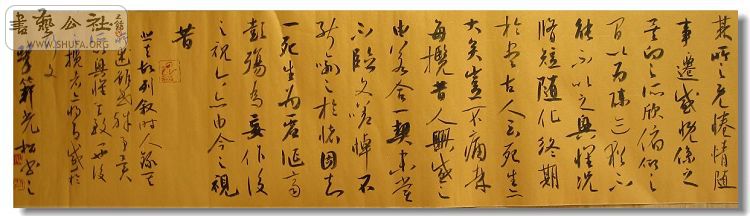 其所之既倦情隨
事遷感慨係之
矣向之所欣俯仰之
間以為陳迹猶不
能不以之興懷況
脩短隨化終期
於盡古人云死生亦
大矣豈不痛哉
每攬昔人興感之
由若合一契未嘗
不臨文嗟悼不
能喻之於懷固知
一死生為虛誕齊
彭殤為妄作後
之視今亦由今之視
昔
悲夫故列叙時人錄其
所述雖世殊事異
所以興懷其致一也後
之攬者亦將有感於
斯文
書藝公社
WWW.SHUFA.ORG